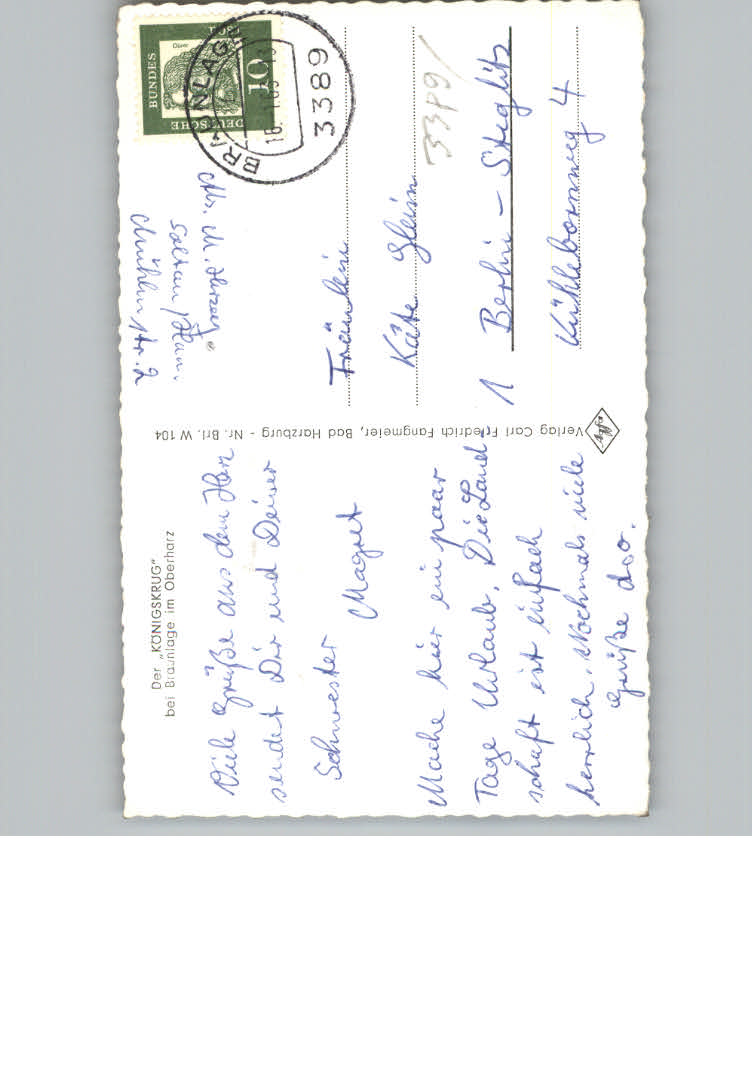 Der „KÖNIGSKRUG"
bei Braunlage im Oberharz
Viele Grüße aus dem Harz
sendet Dir und Deiner
Schwester Magret
Mache hier ein paar
Tage Urlaub. Die Land-
schaft ist einfach
herrlich. Nochmals viele
Grüße d.o.
Verlag Carl Friedrich Fangmeier, Bad Harzburg - Nr. Brl. W 104
Abs. M.
Soltau / Hann.
Mühlenstr. 2
DEUTSCHE
BUNDES
Dürer
10
BRAUNLAGE
3389
Fräulein
Käte Glein
3389/
1 Berlin - Steglitz
Kühlebornweg 4